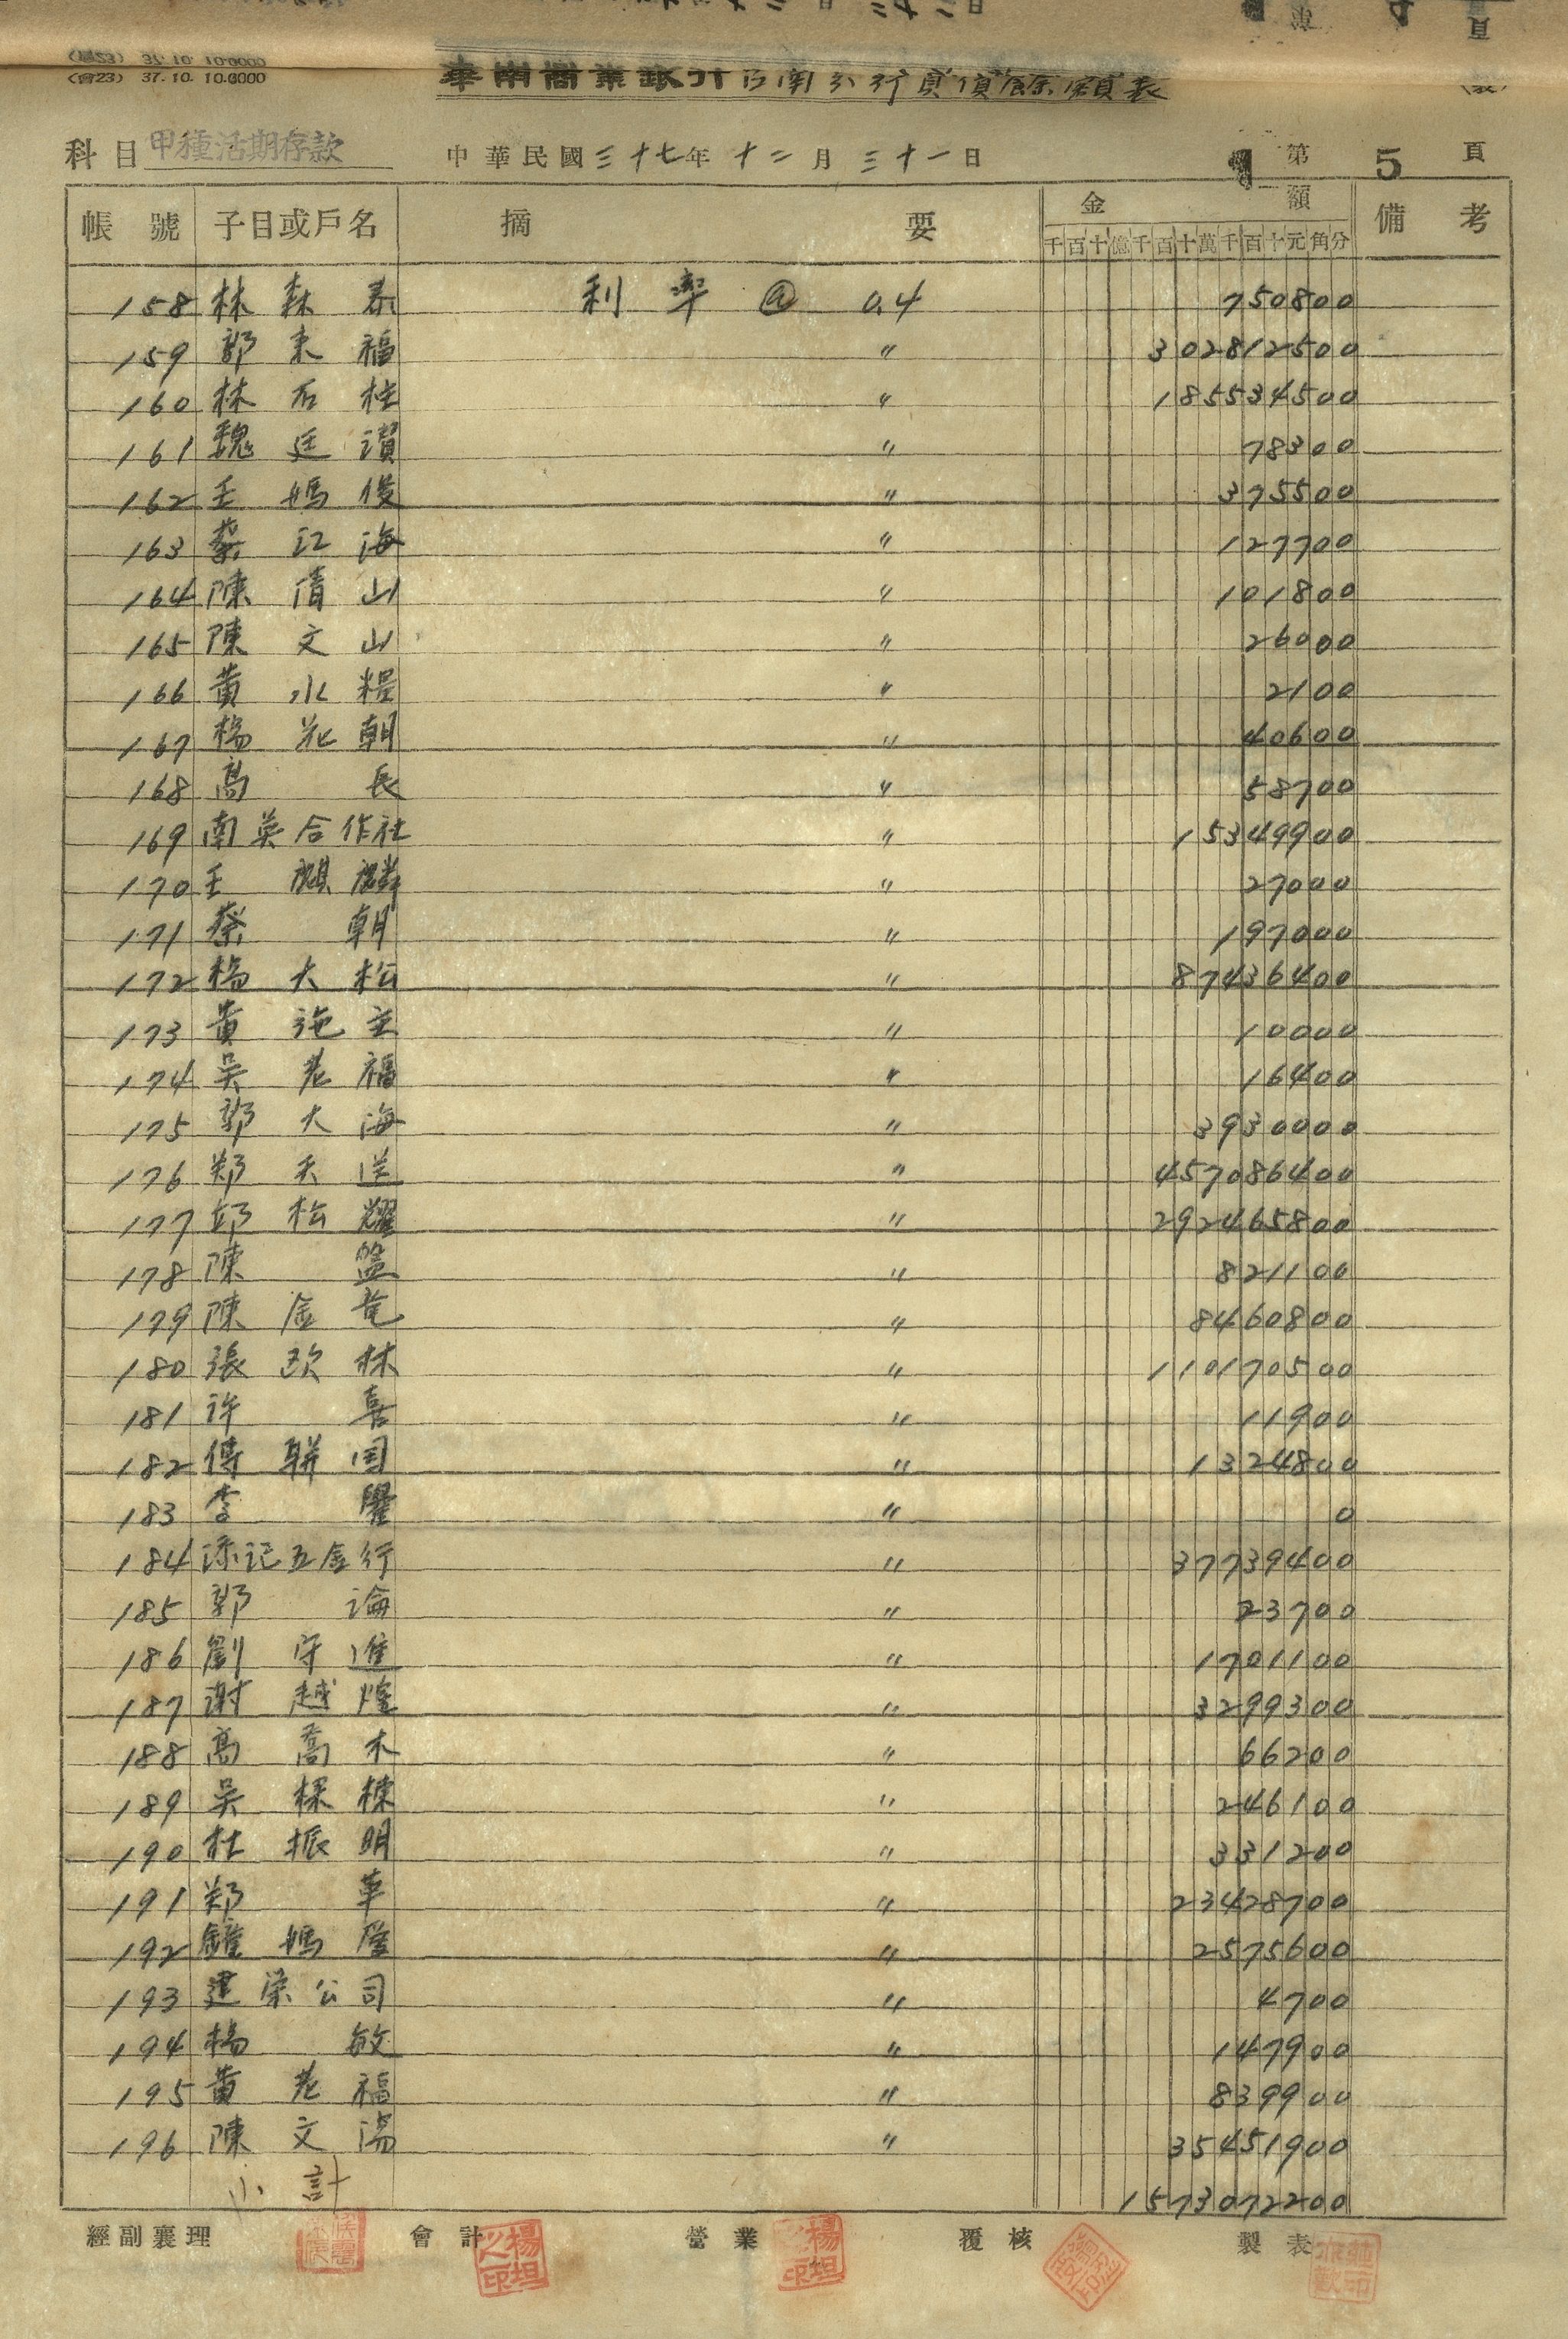 (會23) 37.10.10.6000
華南商業銀行台南分行負債餘額表
科目 甲種活期存款 中華民國三十七年十二月三十一日 第 5 頁
帳號 子目或戶名 摘要 金額 備考
千百十億千百十萬千百十元角分
158 林森泰 利率@0.4 750800
159 郭東福 〃 302812500
160 林石柱 〃 185534500
161 魏廷讚 〃 78300
162 王媽俊 〃 375500
163 蔡江海 〃 127700
164 陳清山 〃 101800
165 陳文山 〃 26000
166 黃水糧 〃 2100
167 楊花朝 〃 40600
168 高長 〃 58700
169 南英合作社 〃 15349900
170 王麒麟 〃 27000
171 蔡朝 〃 197000
172 楊大松 〃 87436400
173 黃施主 〃 10000
174 吳老福 〃 16400
175 郭大海 〃 3930000
176 鄭天送 〃 457086400
177 邱松耀 〃 292465800
178 陳盤 〃 821100
179 陳金 〃 8460800
180 張歐林 〃 110170500
181 許喜 〃 11900
182 傅聯国 〃 1324800
183 李 〃 0
184 添記五金行 〃 37739400
185 郭論 〃 23700
186 劉守進 〃 1701100
187 謝越煌 〃 3299300
188 高喬木 〃 66200
189 吳棵棟 〃 246100
190 杜振明 〃 331200
191 鄭華 〃 23428700
192 鐘媽 〃 2575600
193 建榮公司 〃 4700
194 楊敏 〃 147900
195 黃老福 〃 839900
196 陳文湯 〃 35451900
小計 1573072200
經副襄理 會計 營業 覆核 製表